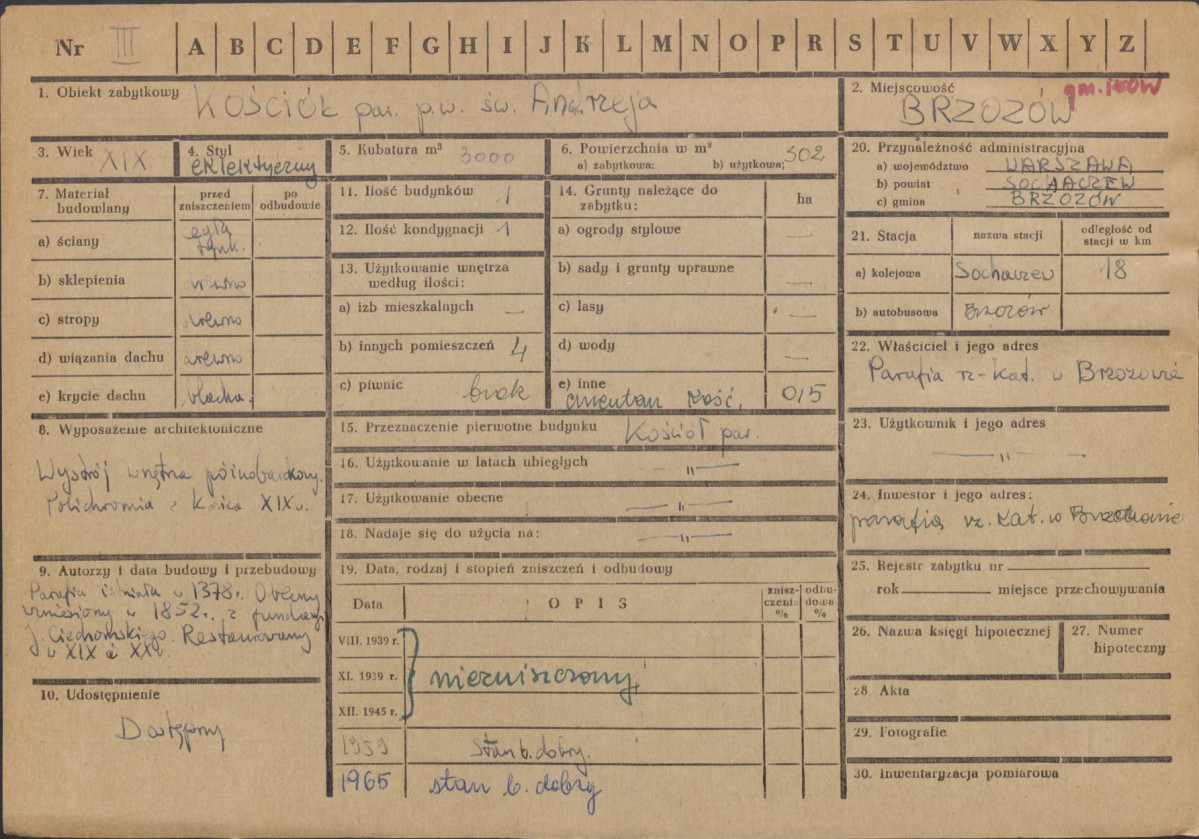 Nr III A B C D E F G H I J K L M N O P R S T U V W X Y Z
1. Obiekt zabytkowy Kościół par. p.w. św. Andrzeja
2. Miejscowość gm. Iłów
BRZOZÓW
3. Wiek XIX
4. Styl eklektyczny
5. Kubatura m³ 3000
6. Powierzchnia w m²
a) zabytkowa: b) użytkowa: 302
7. Materiał budowlany przed zniszczeniem po odbudowie
a) ściany cegła tynk.
b) sklepienia drewno
c) stropy drewno
d) wiązania dachu drewno
e) krycie dachu blacha.
8. Wyposażenie architektoniczne
Wystrój wnętrza późnobarokowy.
Polichromia z końca XIX w.
9. Autorzy i data budowy i przebudowy
Parafia istniała w 1378r. Obecny
wzniesiony w 1852r. z fundacji
J. Ciechomskiego. Restaurowany
w XIX i XXw.
10. Udostępnienie
Dostępny
11. Ilość budynków 1
12. Ilość kondygnacji 1
13. Użytkowanie wnętrza
według ilości:
a) izb mieszkalnych —
b) innych pomieszczeń 4
c) piwnic brak
14. Grunty należące do
zabytku: ha
a) ogrody stylowe —
b) sady i grunty uprawne —
c) lasy —
d) wody —
e) inne
cmentarz kość. 0,5
15. Przeznaczenie pierwotne budynku Kościół par.
16. Użytkowanie w latach ubiegłych —"—
17. Użytkowanie obecne —"—
18. Nadaje się do użycia na: —"—
19. Data, rodzaj i stopień zniszczeń i odbudowy
Data OPIS zniszczeni- % odbudowa %
VIII. 1939 r.
XI. 1939 r. niezniszczony
XII. 1945 r.
1959 stan b. dobry.
1965 stan b. dobry
20. Przynależność administracyjna
a) województwo WARSZAWA
b) powiat SOCHACZEW
c) gmina BRZOZÓW
21. Stacja nazwa stacji odległość od stacji w km
a) kolejowa Sochaczew 18
b) autobusowa Brzozów
22. Właściciel i jego adres
Parafia rz-kat. w Brzozowie
23. Użytkownik i jego adres
—"—
24. Inwestor i jego adres:
parafia rz. kat. w Brzozowie
25. Rejestr zabytku nr
rok miejsce przechowywania
26. Nazwa księgi hipotecznej
27. Numer
hipoteczny
28. Akta
29. Fotografie
30. Inwentaryzacja pomiarowa